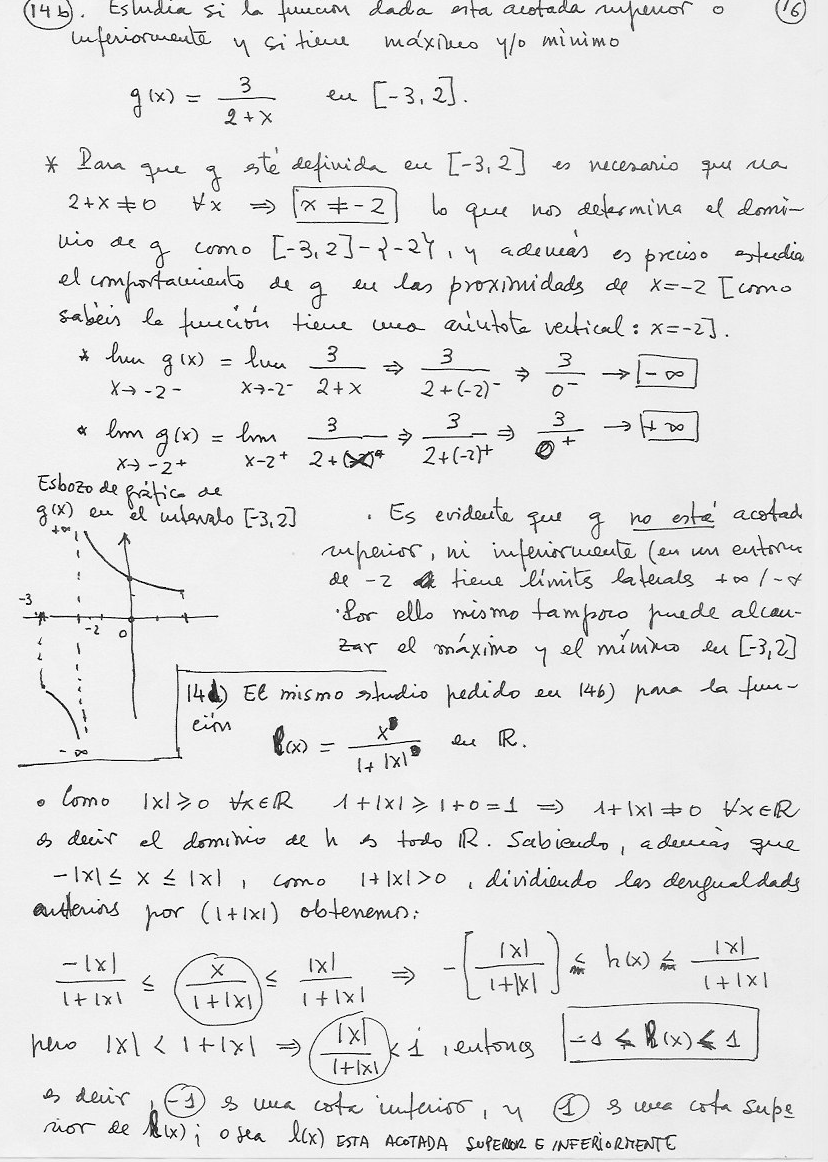 14 b). Estudia si la función dada esta acotada superior o (16)
inferiormente y si tiene máximo y/o mínimo
g(x) = 3/(2+x) en [-3,2].
* Para que g esté definida en [-3,2] es necesario que sea
2+x≠0 ∀x ⇒ x ≠ -2 lo que nos determina el domi-
nio de g como [-3,2]-{-2}, y además es preciso estudia
el comportamiento de g en las proximidades de x=-2 [como
sabéis la función tiene una asíntota vertical: x=-2].
* lim g(x) = lim 3/(2+x) ⇒ 3/(2+(-2)⁻) ⇒ 3/0⁻ → -∞
x→-2⁻ x→-2⁻
* lim g(x) = lim 3/(2+x) ⇒ 3/(2+(-2)⁺) ⇒ 3/0⁺ → +∞
x→-2⁺ x-2⁺
Esbozo de gráfica de
g(x) en el intervalo [-3,2]
+∞
-3
-2 0
-∞
· Es evidente que g no está acotad
superior, ni inferiormente (en un entorno
de -2 tiene límites laterales +∞/-∞
· Por ello mismo tampoco puede alcan-
zar el máximo y el mínimo en [-3,2]
14d) El mismo estudio pedido en 14b) para la fun-
ción
h(x) = x/(1+|x|) en ℝ.
• Como |x|≥0 ∀x∈ℝ 1+|x|≥1+0=1 ⇒ 1+|x|≠0 ∀x∈ℝ
es decir el dominio de h es todo ℝ. Sabiendo, además que
-|x| ≤ x ≤ |x|, como 1+|x|>0, dividiendo las desigualdades
anteriores por (1+|x|) obtenemos:
-|x|/(1+|x|) ≤ x/(1+|x|) ≤ |x|/(1+|x|) ⇒ -[|x|/(1+|x|)] ≤ h(x) ≤ |x|/(1+|x|)
pero |x| < 1+|x| ⇒ |x|/(1+|x|) < 1, entonces -1 < h(x) < 1
es decir, -1 es una cota inferior, y 1 es una cota supe
rior de h(x); o sea h(x) ESTA ACOTADA SUPERIOR E INFERIORMENTE